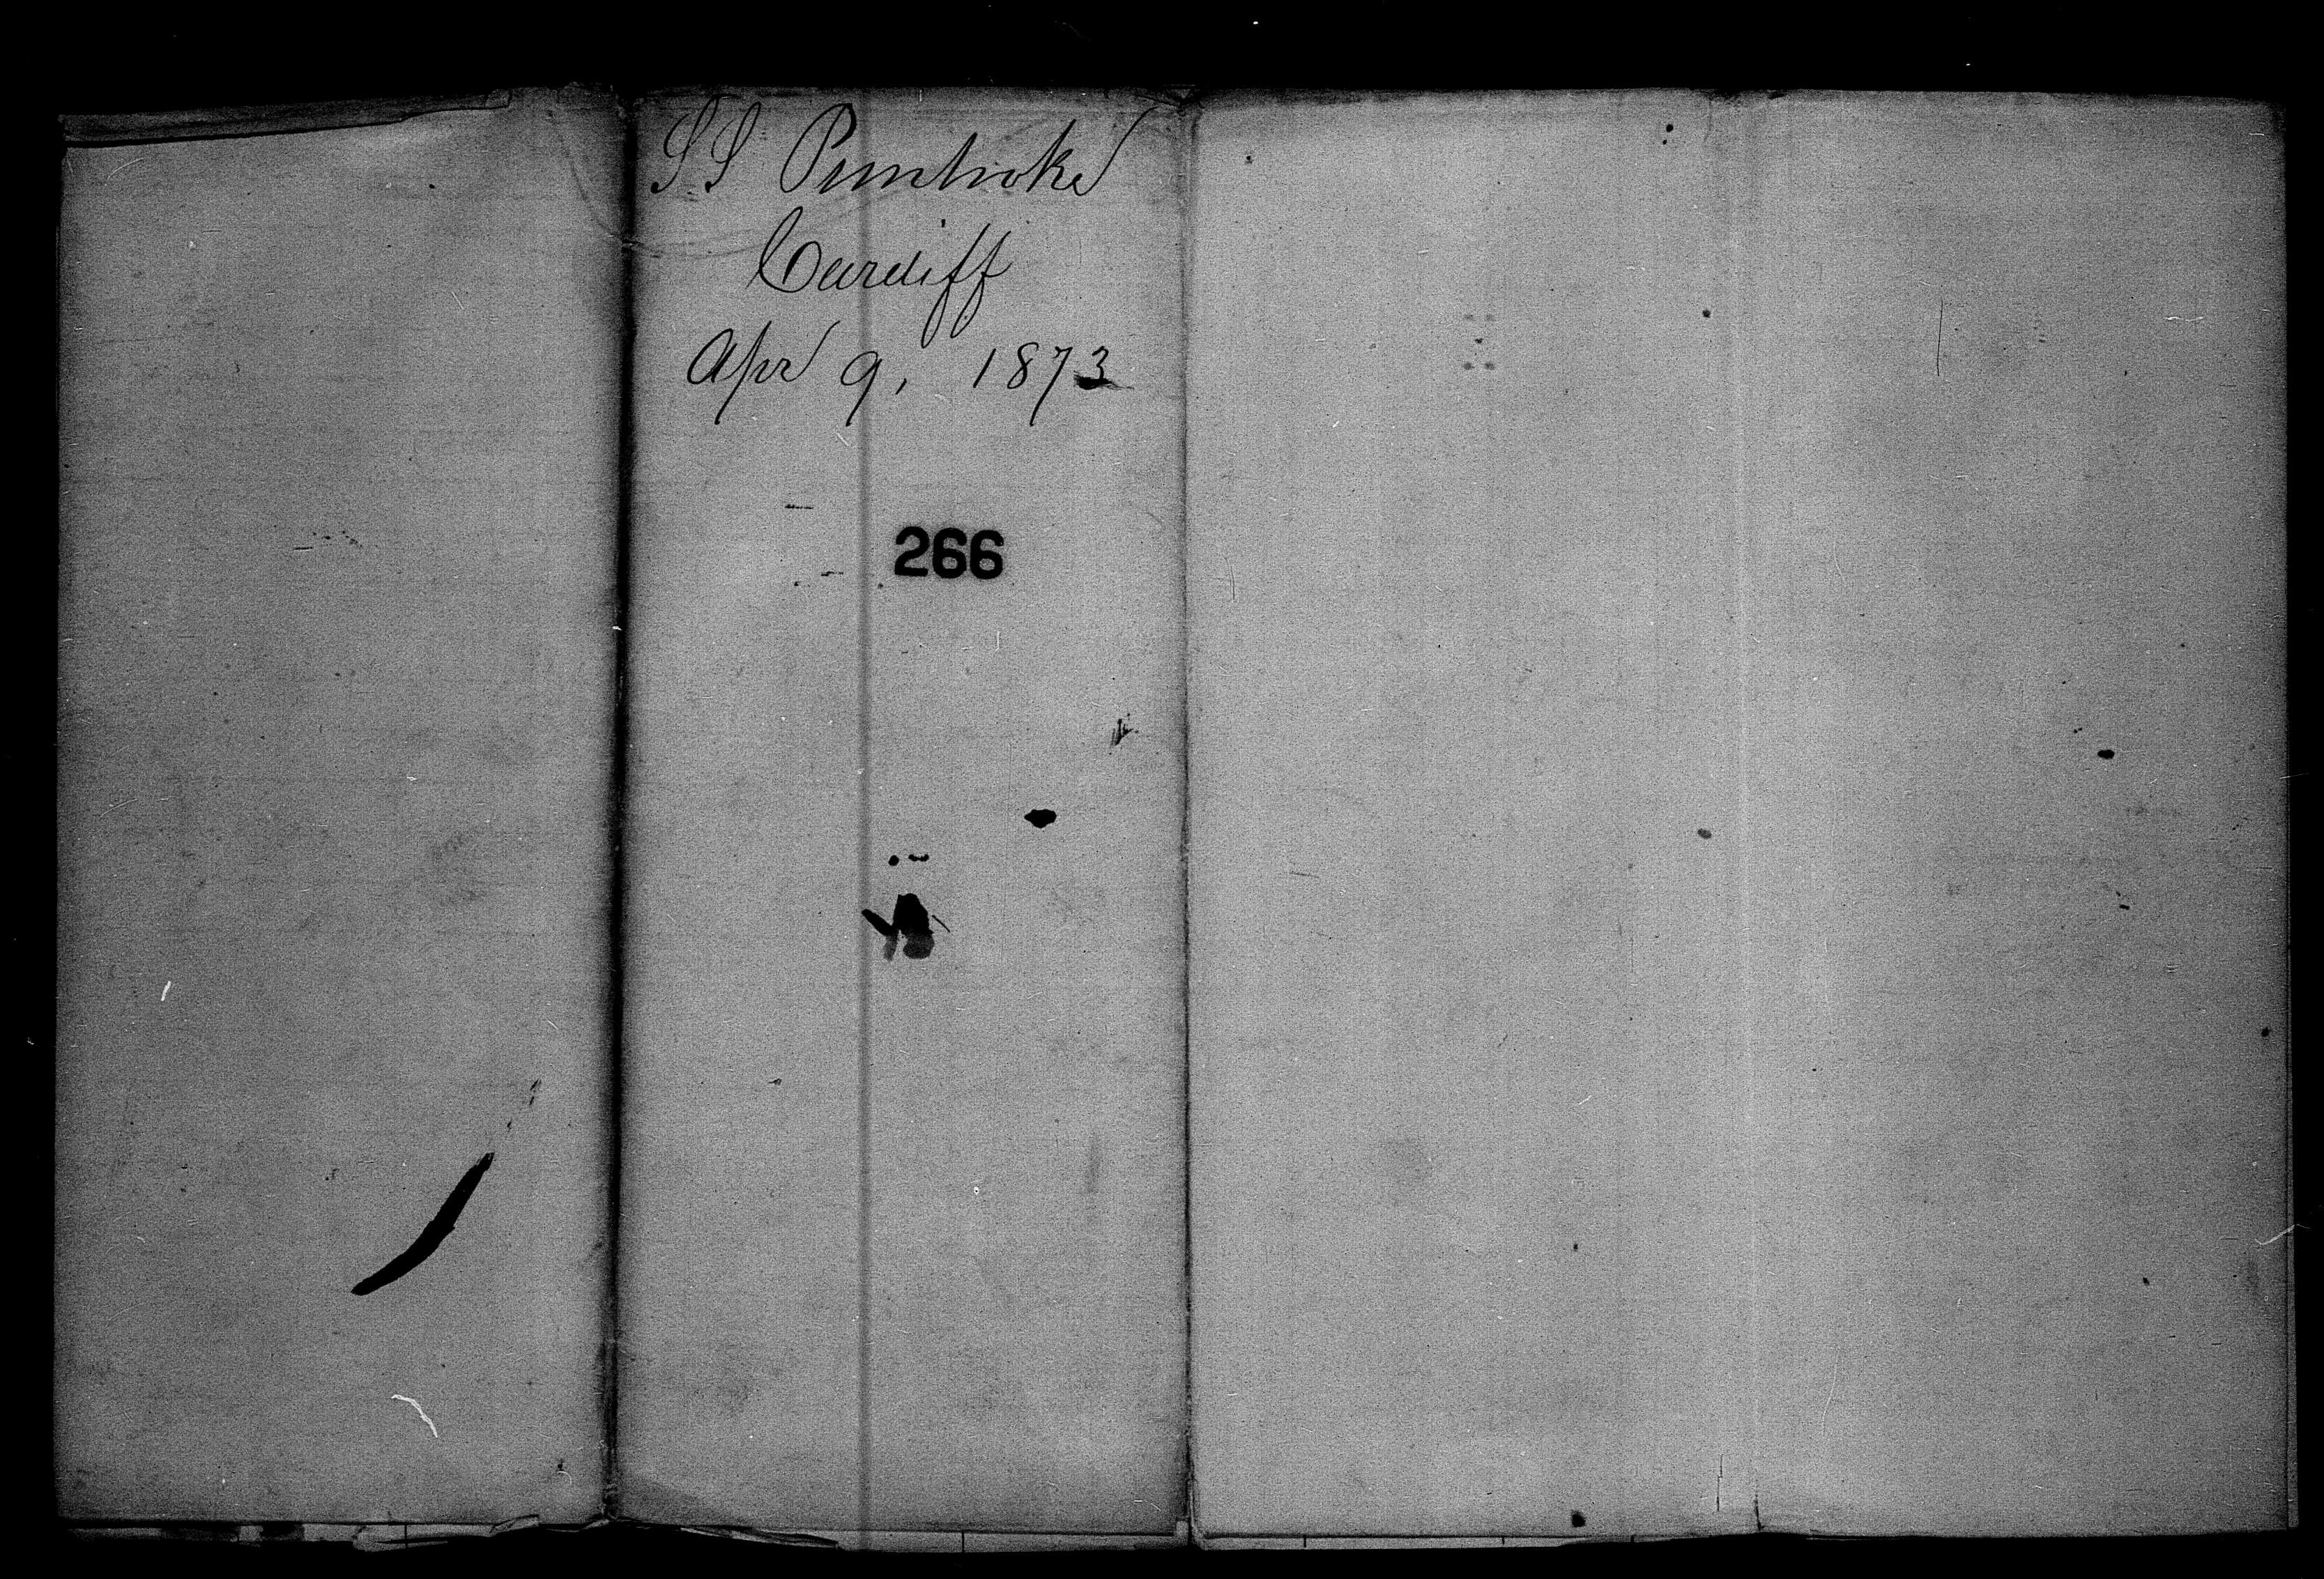 SS Pembroke
Cardiff
Apr 9, 1873
266